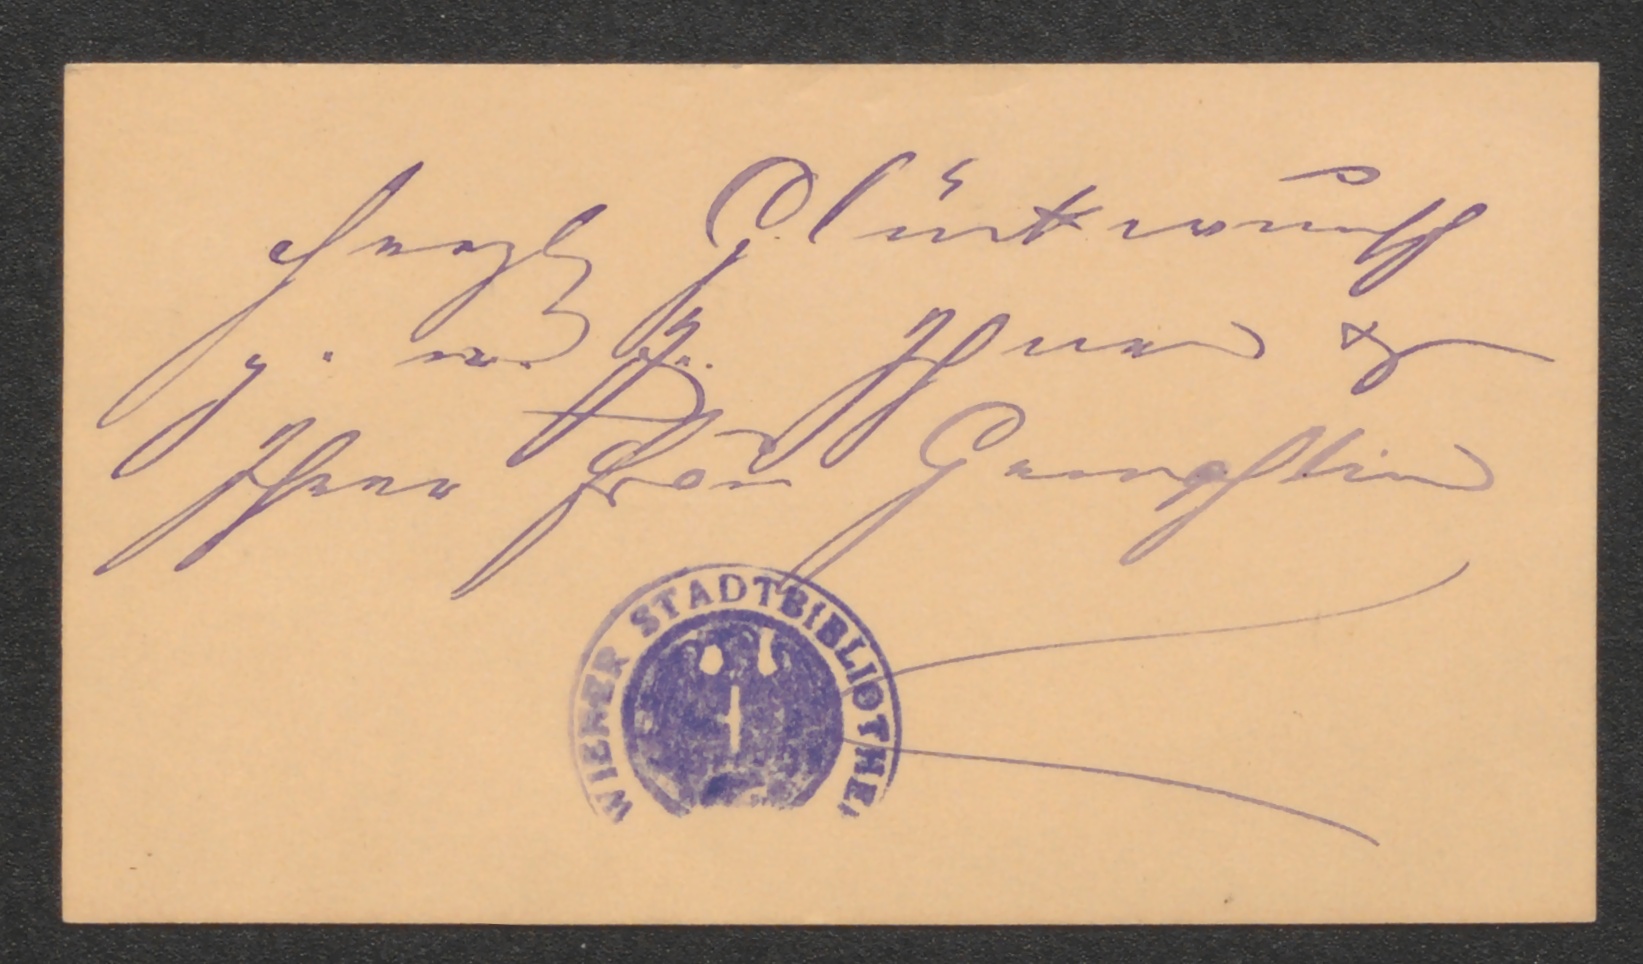 herzl Glückwunsch
z. n. J. Ihnen &
Ihrer Frau Gemahlin
WIENER STADTBIBLIOTHEK